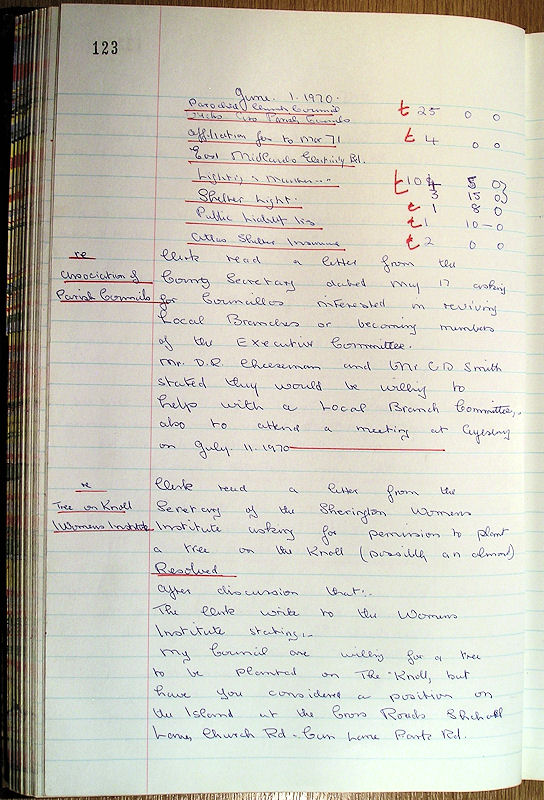 123
June. 1. 1970.
Parochial Church Council £ 25 0 0
Parish Councils
affiliation fee to Mar 71 £ 4 0 0
East Midlands Electricity Bd.
Lighting & £ 10 5 0
Shelter Light. 3 15 0
£ 1 8 0
Public Liability Ins £ 1 10 - 0
Shelter Insurance £ 2 0 0
re Clerk read a letter from the
Association of County Secretary dated May 17 asking
Parish Councils for Councillors interested in reviving
Local Branches or becoming members
of the Executive Committee.
Mr. D.R. Cheeseman and Mr C D Smith
stated they would be willing to
help with a Local Branch Committee,
also to attend a meeting at Aylesbury
on July. 11. 1970
re Clerk read a letter from the
Tree on Knoll Secretary of the Sherington Womens
Womens Institute Institute asking for permission to plant
a tree on the Knoll (possibly an almond)
Resolved
after discussion that:-
The Clerk write to the Womens
Institute stating,-
My Council are willing for a tree
to be planted on The Knoll, but
have you considered a position on
the Island at the Cross Roads
Lane, Church Rd - Gun Lane Park Rd.